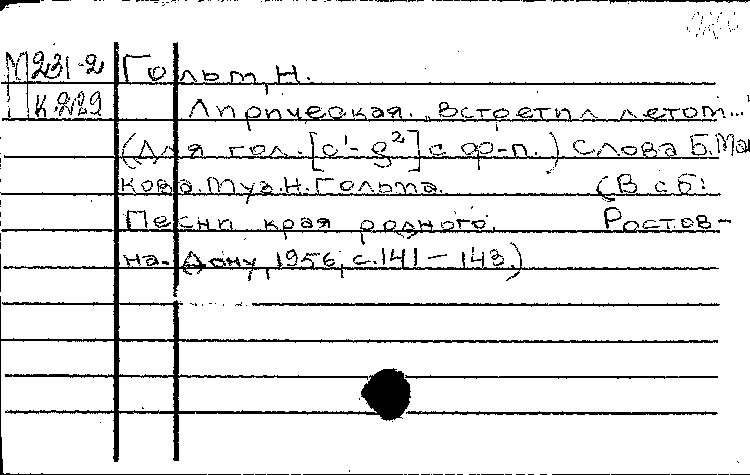 М231-2 Гольт, Н.
К229 Лирическая. „Встретил летом..."
(Для гол. [c¹-g²] с ф-п.) Слова Б. Мак
кова. Муз. Н. Гольта. (В сб:
Песни края родного. Ростов-
на-Дону, 1956, с. 141-143.)